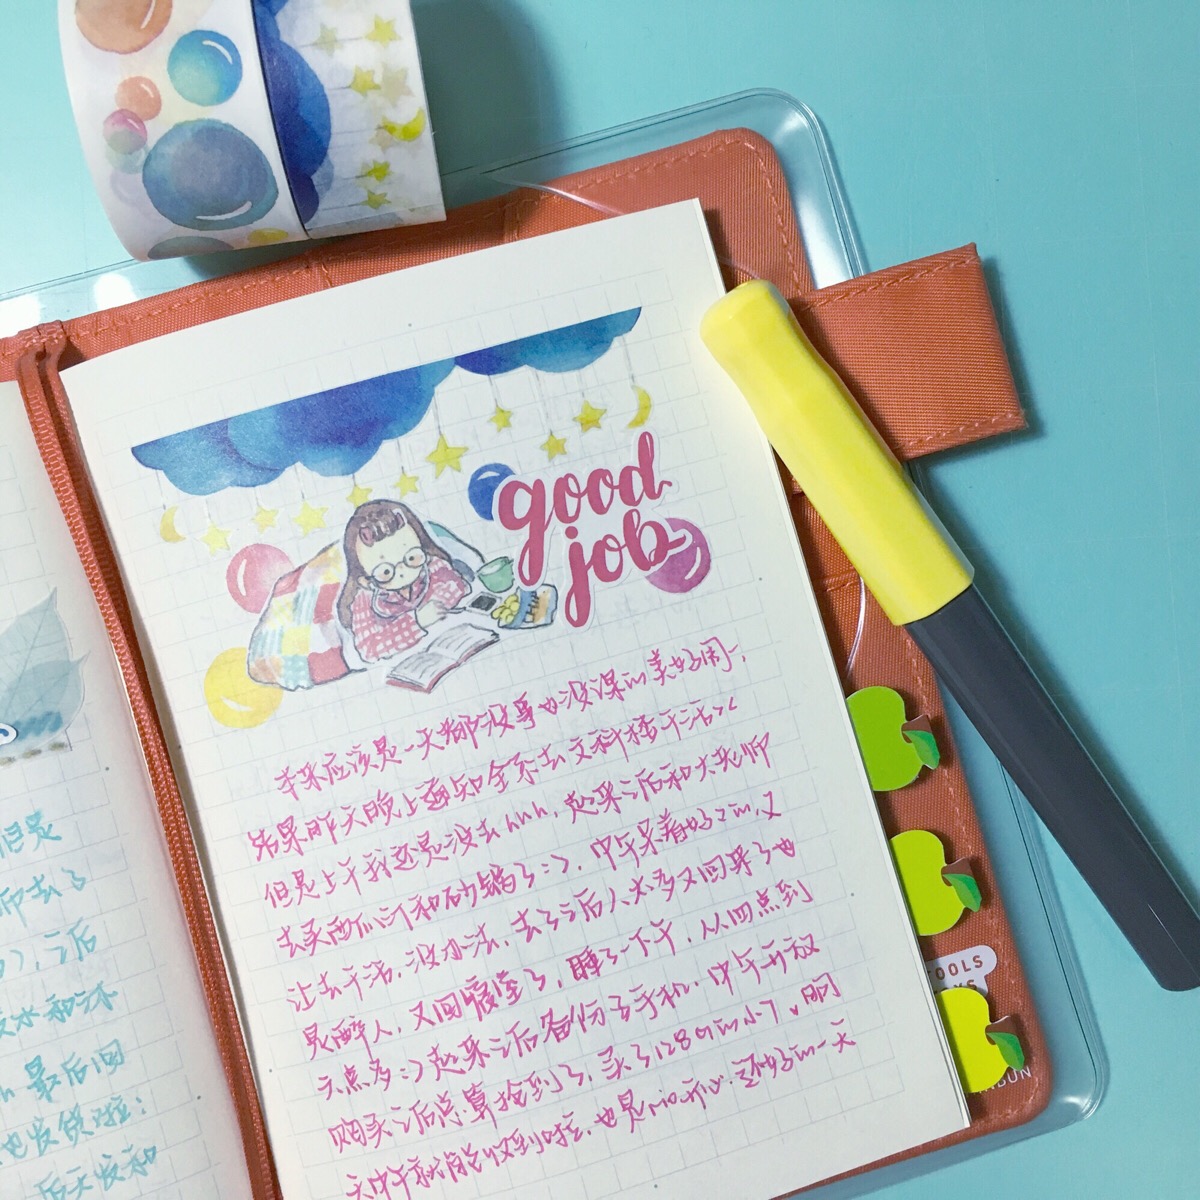 good
job
本来应该是一天都没事也没课的美好周一,
结果昨天晚上通知全系去文科楼干活><
但是上午我还是没去hhh,起来之后和大老师
去买西瓜和砂锅了:),中午呆着好好的,又
让去干活,没办法,去了之后人太多又回来了也
是醉人,又回寝室了,睡了一下午,从四点到
六点多:)起来之后备份了手机,中午开放
购买之后总算抢到了,买了128G的小7,明
天中午就能收到啦,也是很开心,还好的一天
但是
师去了
,之后
水和冰
最后回
也发货啦:
后天发和
TOOLS